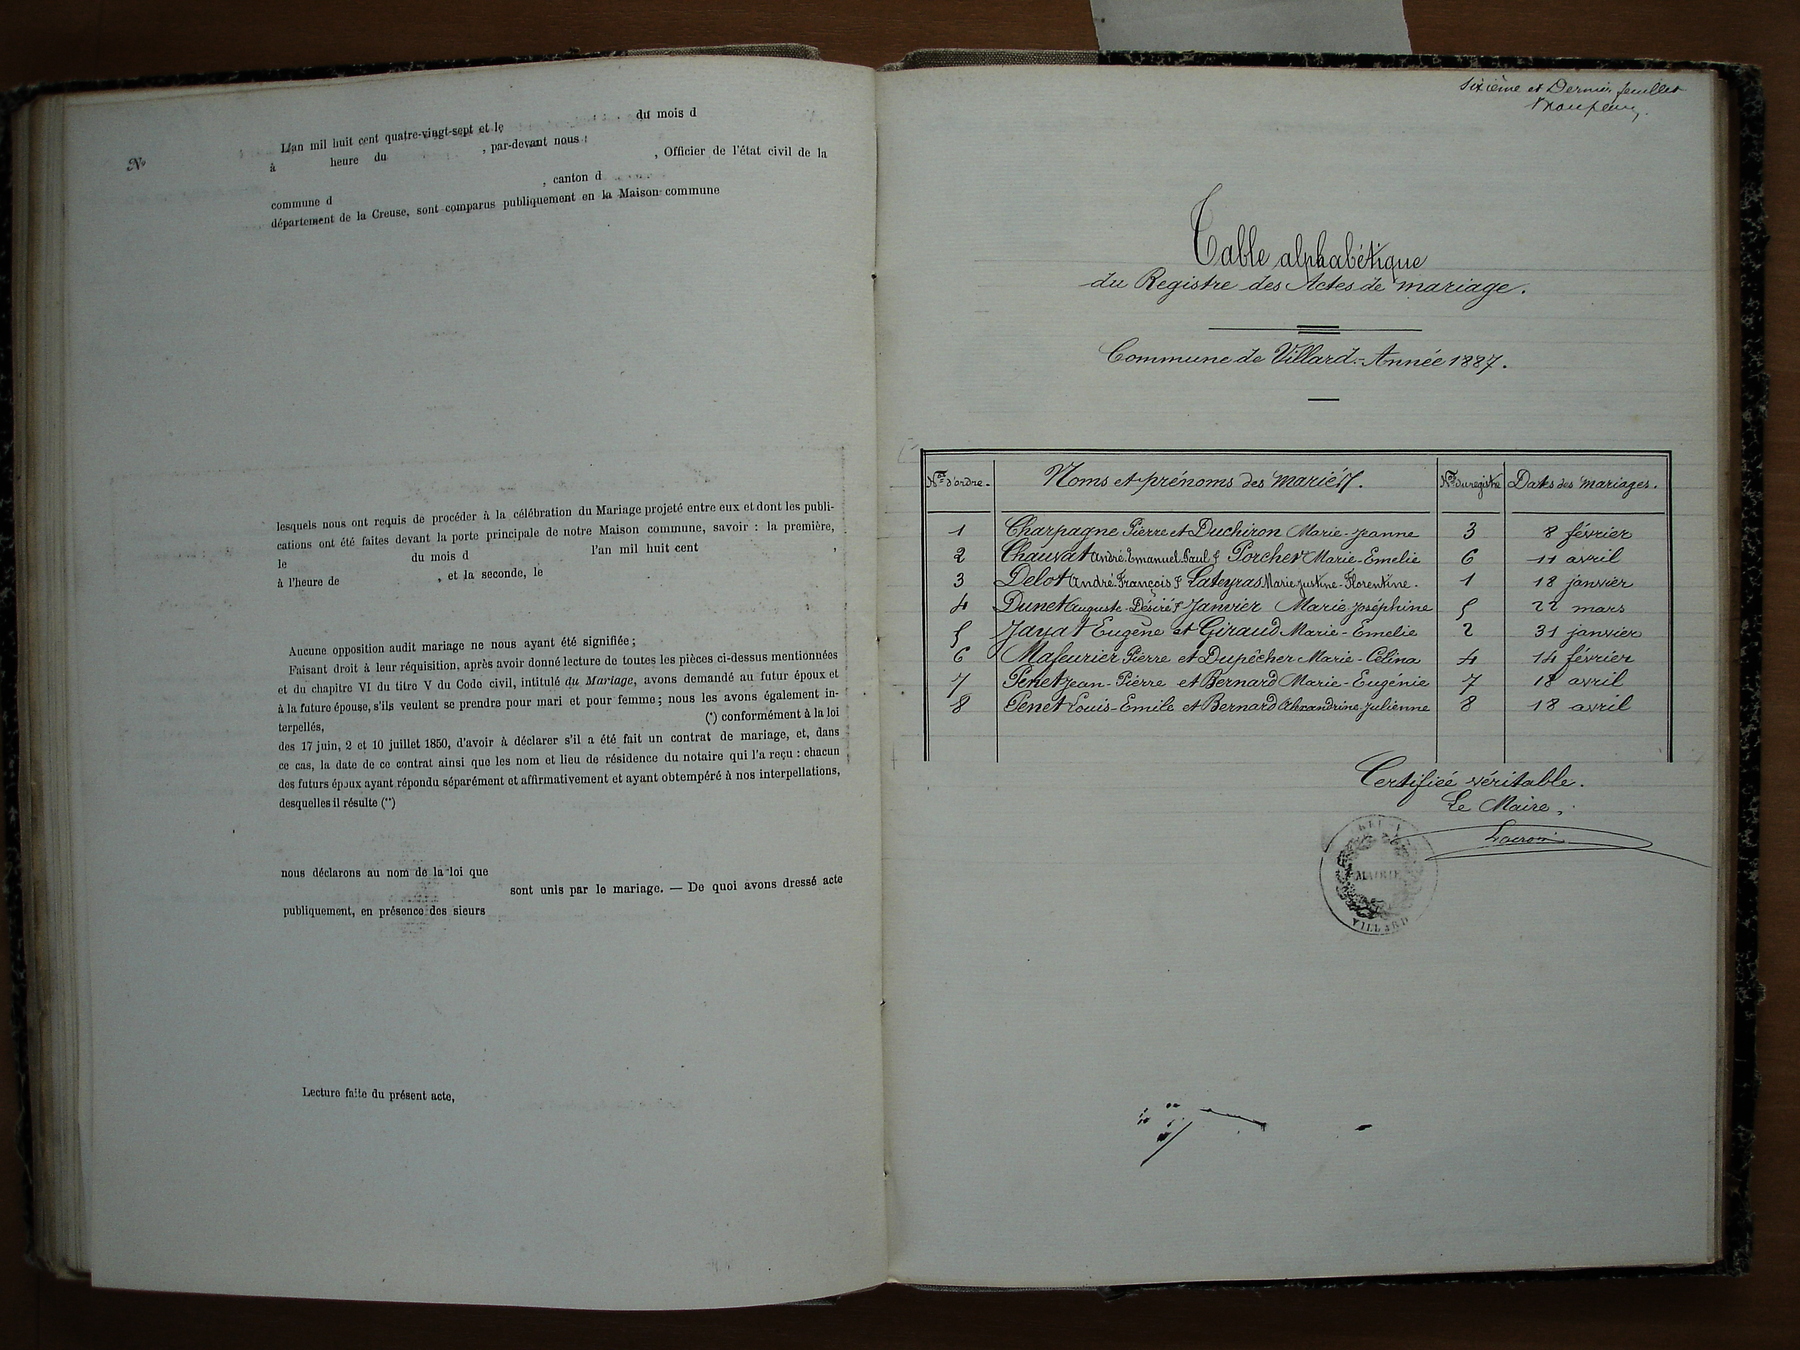 N°
L'an mil huit cent quatre-vingt-sept et le du mois d
à heure du , par-devant nous
, Officier de l'état civil de la
commune d , canton d
département de la Creuse, sont comparus publiquement en la Maison commune
lesquels nous ont requis de procéder à la célébration du Mariage projeté entre eux et dont les publi-
cations ont été faites devant la porte principale de notre Maison commune, savoir : la première,
le du mois d l'an mil huit cent ,
à l'heure de , et la seconde, le
Aucune opposition audit mariage ne nous ayant été signifiée ;
Faisant droit à leur réquisition, après avoir donné lecture de toutes les pièces ci-dessus mentionnées
et du chapitre VI du titre V du Code civil, intitulé du Mariage, avons demandé au futur époux et
à la future épouse, s'ils veulent se prendre pour mari et pour femme ; nous les avons également in-
terpellés, (*) conformément à la loi
des 17 juin, 2 et 10 juillet 1850, d'avoir à déclarer s'il a été fait un contrat de mariage, et, dans
ce cas, la date de ce contrat ainsi que les nom et lieu de résidence du notaire qui l'a reçu : chacun
des futurs époux ayant répondu séparément et affirmativement et ayant obtempéré à nos interpellations,
desquelles il résulte (**)
nous déclarons au nom de la loi que
sont unis par le mariage. — De quoi avons dressé acte
publiquement, en présence des sieurs
Lecture faite du présent acte,
Sixième et Dernier feuillet
Table alphabétique
du Registre des Actes de mariage.
Commune de Villard.- Année 1887.
Nos d'ordre. Noms et prénoms des mariés. Nos du registre Dates des mariages.
1 Charpagne Pierre et Duchiron Marie-Jeanne 3 8 février
2 Chauvat André-Emmanuel-Paul & Porcher Marie-Emelie 6 11 avril
3 Delot André-François & Lateyras Marie-Justine-Florentine. 1 18 janvier
4 Dunet Auguste-Désiré & Janvier Marie-Joséphine 5 22 mars
5 Jayat Eugène et Giraud Marie-Emelie 2 31 janvier
6 Mafeurier Pierre et Dupécher Marie-Célina 4 14 février
7 Penet Jean-Pierre et Bernard Marie-Eugénie 7 18 avril
8 Penet Louis-Emile et Bernard Alexandrine-Julienne 8 18 avril
Certifiée véritable.
Le Maire,
MAIRIE
VILLARD